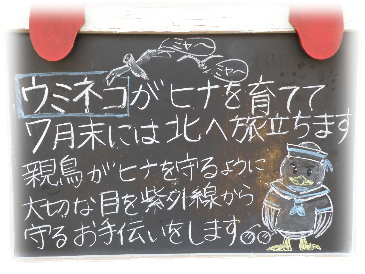 ミャー
ミャー
ウミネコがヒナを育てて
7月末には北へ旅立ちます
親鳥がヒナを守るように
大切な目を紫外線から
守るお手伝いをします